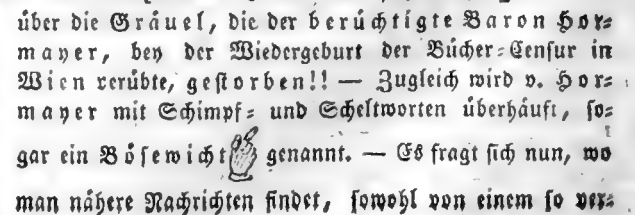 über die Gräuel, die der berüchtigte Baron Hor-
mayer, bey der Wiedergeburt der Bücher-Censur in
Wien verübte, gestorben!! — Zugleich wird v. Hor-
mayer mit Schimpf- und Scheltworten überhäuft, so-
gar ein Bösewicht genannt. — Es fragt sich nun, wo
man nähere Nachrichten findet, sowohl von einem so ver-